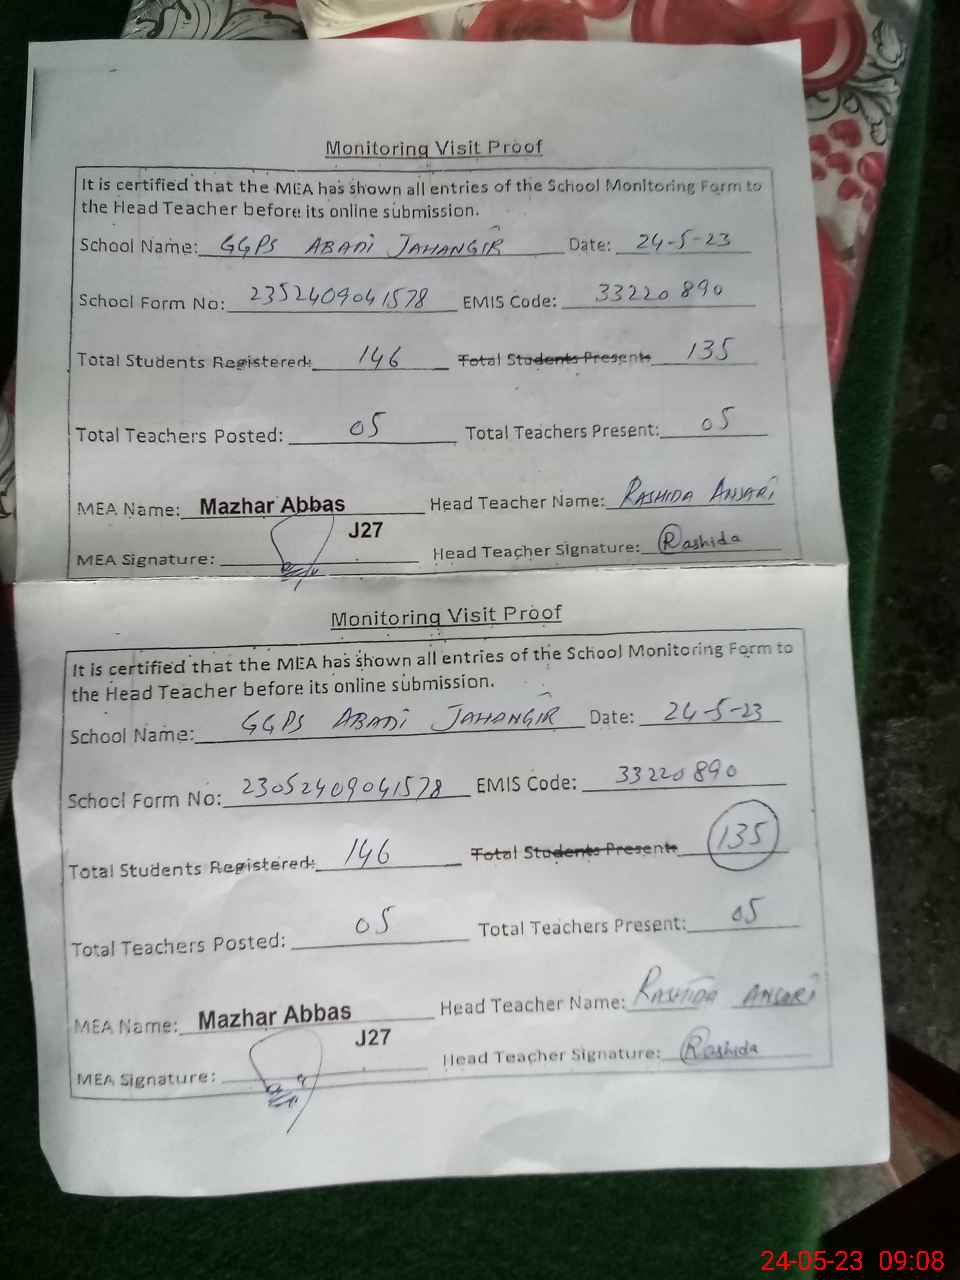 Monitoring Visit Proof
It is certified that the MEA has shown all entries of the School Monitoring Form to
the Head Teacher before its online submission.
School Name: GGPS ABADI JAHANGIR Date: 24-5-23
School Form No: 2352409041578 EMIS Code: 33220890
Total Students Registered: 146 Total Students Present: 135
Total Teachers Posted: 05 Total Teachers Present: 05
MEA Name: Mazhar Abbas Head Teacher Name: RASHIDA ANSARI
J27
MEA Signature: Head Teacher Signature: Rashida
Monitoring Visit Proof
It is certified that the MEA has shown all entries of the School Monitoring Form to
the Head Teacher before its online submission.
School Name: GGPS ABADI JAHANGIR Date: 24-5-23
School Form No: 23052409041578 EMIS Code: 33220890
Total Students Registered: 146 Total Students Present: 135
Total Teachers Posted: 05 Total Teachers Present: 05
MEA Name: Mazhar Abbas Head Teacher Name: RASHIDA ANSARI
J27
MEA Signature: Head Teacher Signature: Rashida
24-05-23 09:08